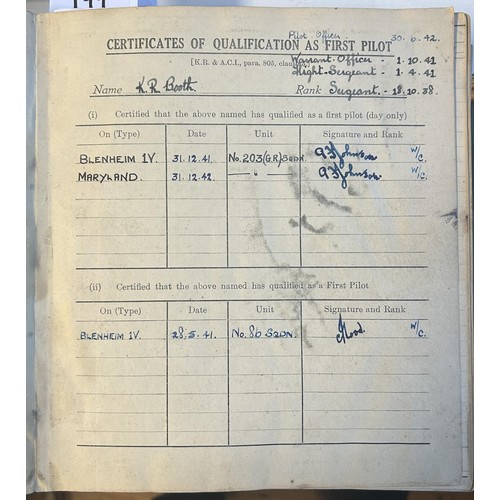 Pilot Officer 30.6.42.
CERTIFICATES OF QUALIFICATION AS FIRST PILOT
[K.R. & A.C.I., para. 805, clause
Warrant Officer - 1.10.41
Flight Sergeant - 1.4.41
Name K.R Booth. Rank Sergeant - 18.10.38.
(i) Certified that the above named has qualified as a first pilot (day only)
On (Type) Date Unit Signature and Rank
BLENHEIM IV. 31.12.41. No. 203 (G.R) SQDN. Johnson W/C.
MARYLAND. 31.12.42. — " — Johnson W/C.
(ii) Certified that the above named has qualified as a First Pilot
On (Type) Date Unit Signature and Rank
BLENHEIM IV. 28.5.41. No. 86 SQDN. W/C.